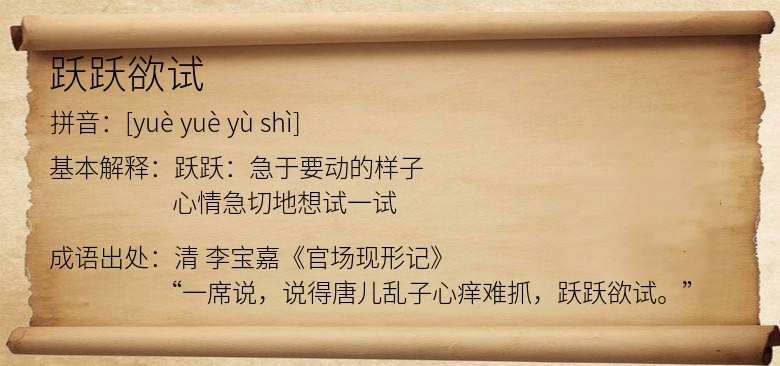 跃跃欲试
拼音：[yuè yuè yù shì]
基本解释：跃跃：急于要动的样子
心情急切地想试一试
成语出处：清 李宝嘉《官场现形记》
“一席说，说得唐儿乱子心痒难抓，跃跃欲试。”